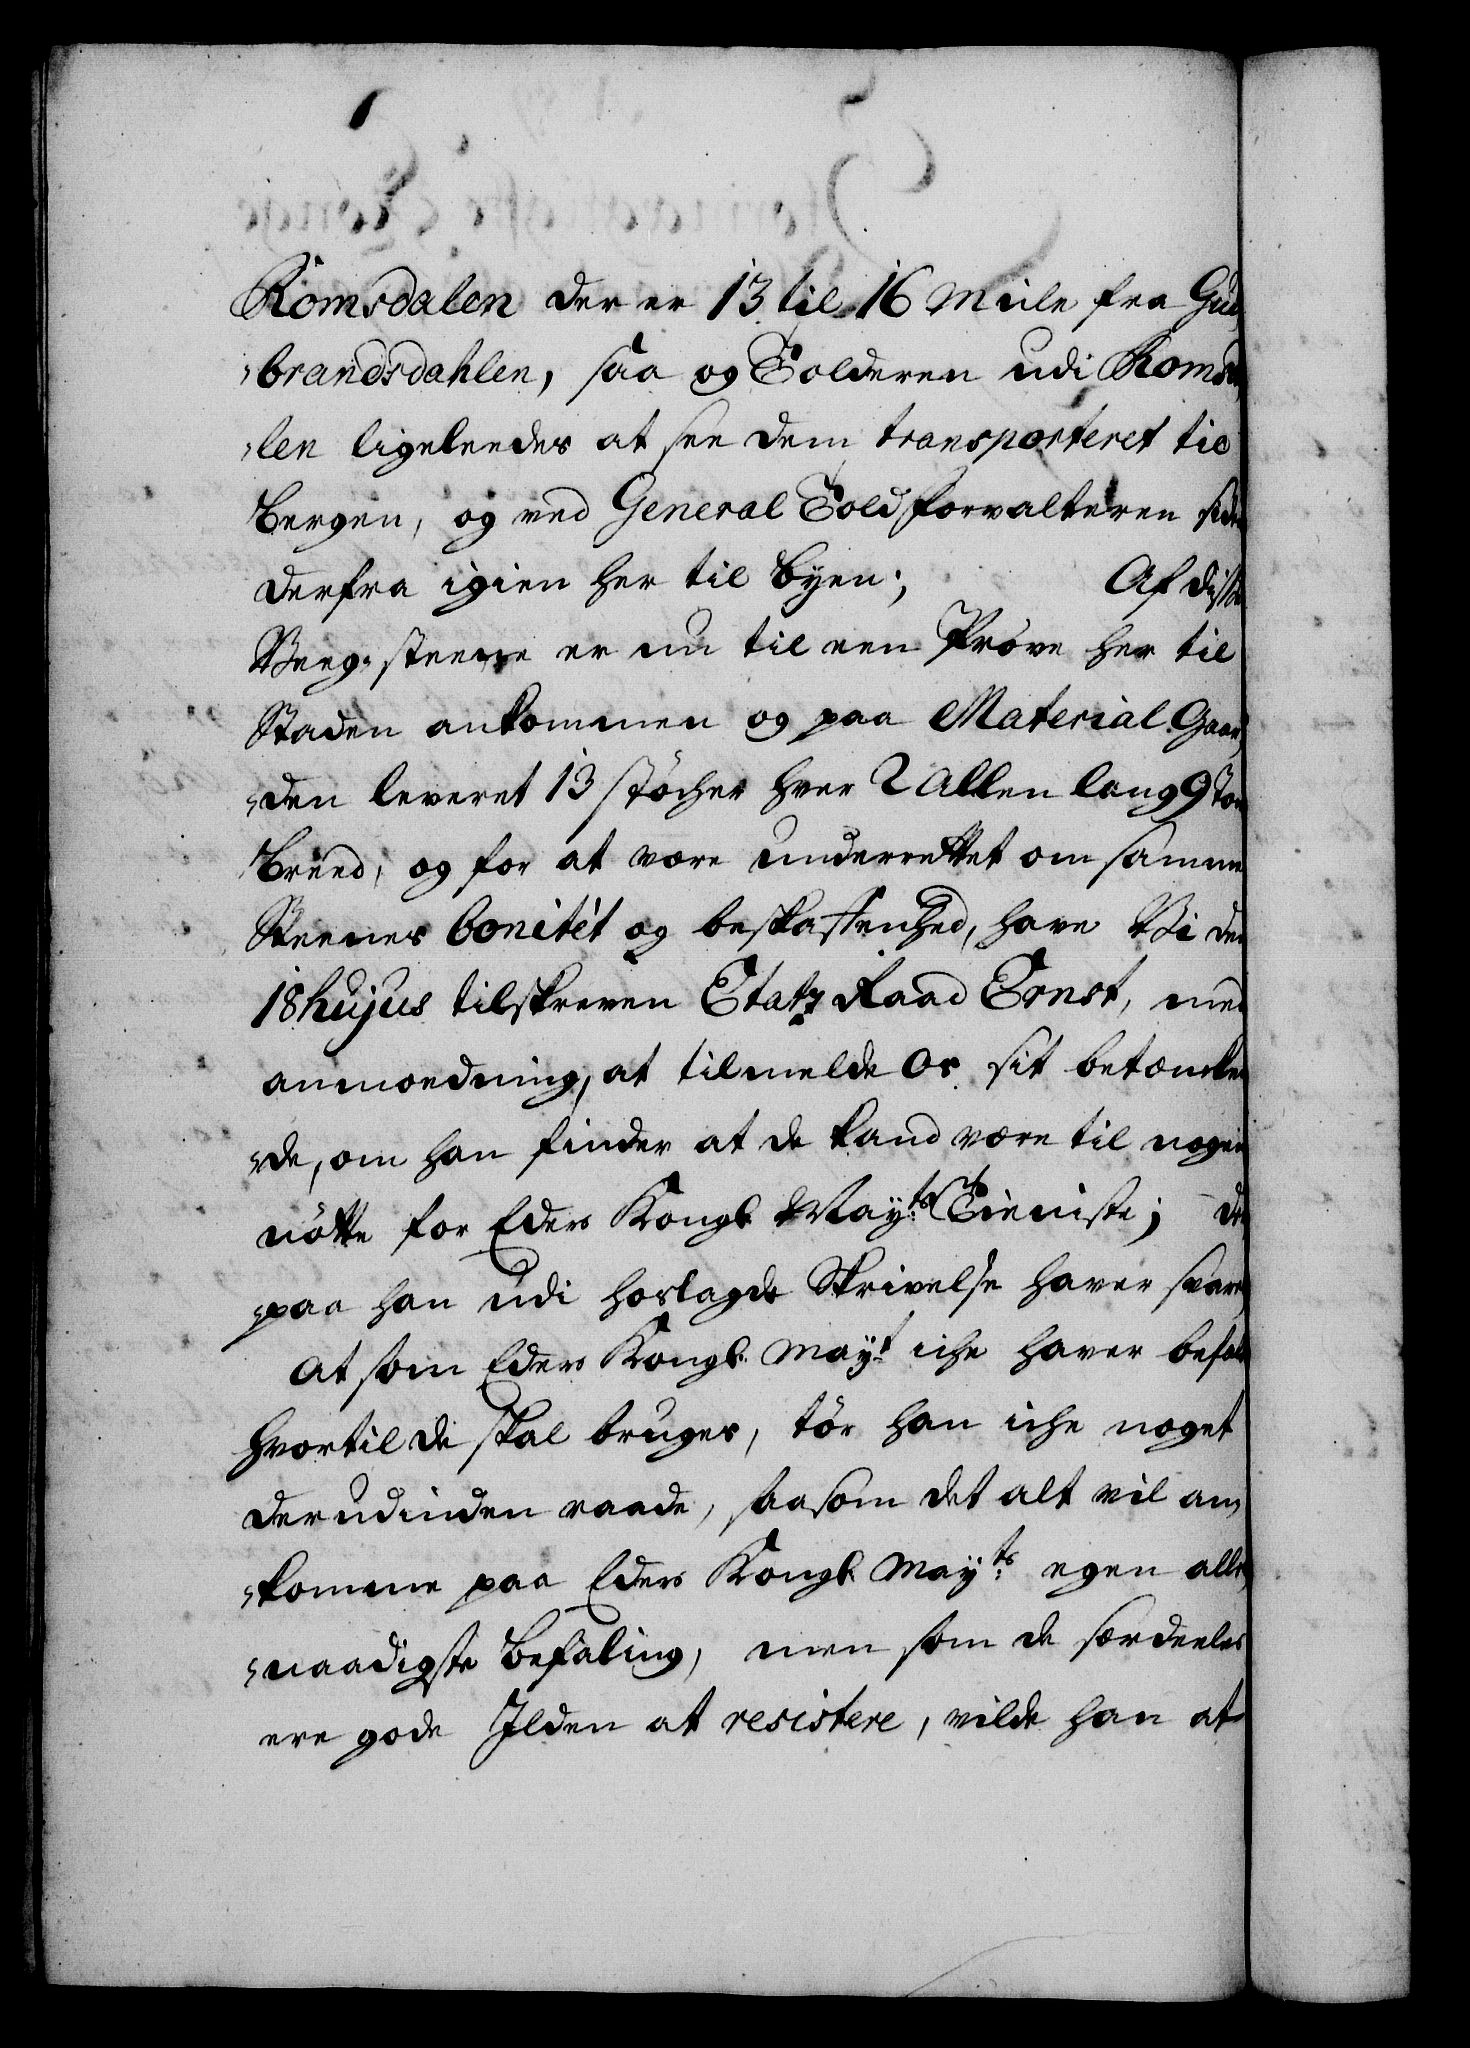 Romsdalen der er 13 til 16 Miile fra Gud
brandsdahlen, saa og Tolderen udi Romsda
len ligeleedes at see dem transporteret til
Bergen, og ved General Toldforvalteren siden
derfra igien her til Byen; Af disse
Veeg-steene er nu til een Prøve her til
Staden ankommen og paa Material-Gaar
den leveret 13 støcher hver 2 Allen lang 9 Tom
breed, og for at være underrettet om samme
Steenes bonitét og beskaffenhed, have Vi den
18 hujus tilskreven Etatz Raad Ernst, med
anmoedning, at tilmelde Os sit betænken
de, om han finder at de kand være til nogen
nøtte for Eders Kongl. May:ts Tieniste; der
paa han udi hoslagde Skrivelse haver svaret
At som Eders Kongl. May:t iche haver befalet
hvortil de skal bruges, tør han iche noget
derudinden raade, saasom det alt vil an
komme paa Eders Kongl. May:ts egen aller
naadigste Befaling, men som de særdeeles
ere gode Ilden at resistere, vilde han at